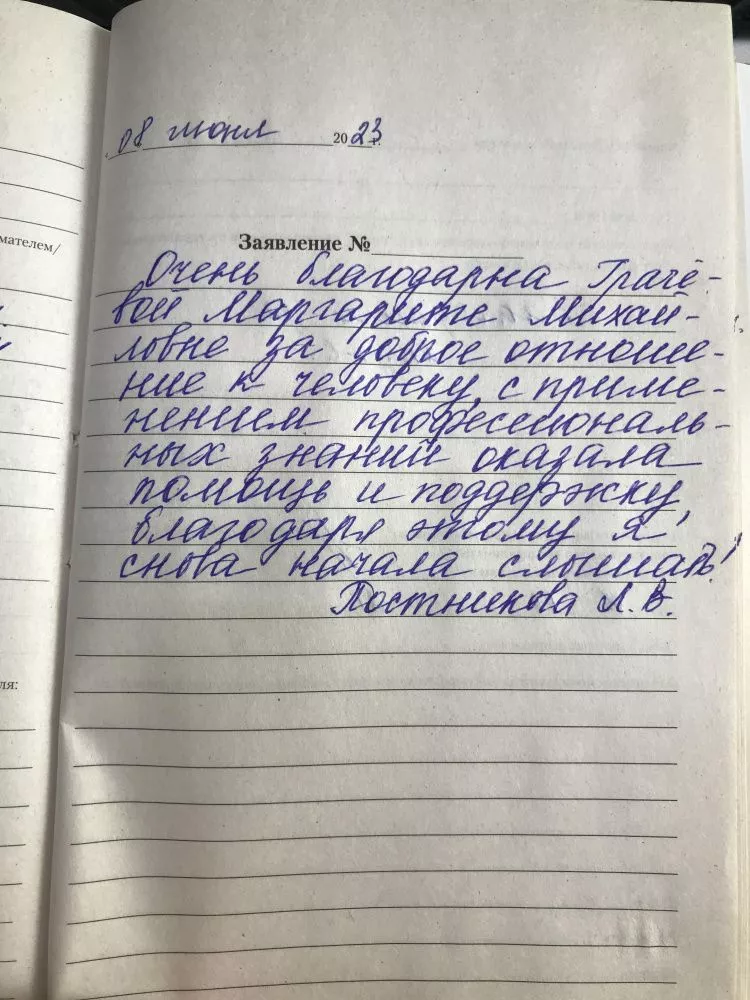 08 июня 2023 г.
мателем/
Заявление №
Очень благодарна Грачё-
вой Маргарите Михай-
ловне за доброе отноше-
ние к человеку, с приме-
нением профессиональ-
ных знаний оказала
помощь и поддержку,
благодаря этому я
снова начала слышать!
Постникова Л. В.
ля: